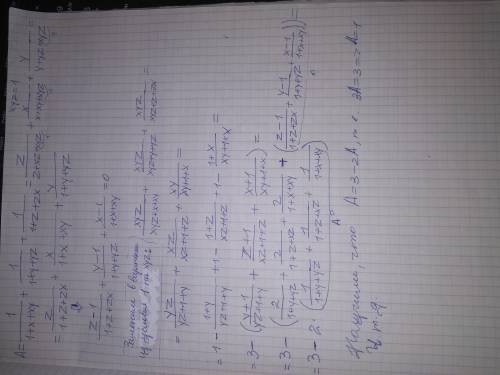 xyz=1
A = 1/(1+x+xy) + 1/(1+y+yz) + 1/(1+z+zx) = z/(z+xz+xyz) + x/(x+xy+xyz) + y/(y+yz+xyz) =
= z/(1+z+zx) + x/(1+x+xy) + y/(1+y+yz)
(z-1)/(1+z+zx) + (y-1)/(1+y+yz) + (x-1)/(1+x+xy) = 0
Заменим в 1 на xyz:
xyz/(xyz+x+xy) + xyz/(xyz+y+yz) + xyz/(xyz+z+zx) =
= yz/(yz+1+y) + xz/(xz+1+z) + xy/(xy+1+x) =
= 1 - (1+y)/(yz+1+y) + 1 - (1+z)/(xz+1+z) + 1 - (1+x)/(xy+1+x) =
= 3 - ((y+1)/(yz+1+y) + (z+1)/(xz+1+z) + (x+1)/(xy+1+x)) =
= 3 - (2/(1+y+yz) + 2/(1+z+xz) + 2/(1+x+xy) + ((z-1)/(1+z+zx) + (y-1)/(1+y+yz) + (x-1)/(1+x+xy))) =
= 3 - 2·(1/(1+y+yz) + 1/(1+z+xz) + 1/(1+x+xy))
A
Получим, что A=3-2A, т.е. 3A=3 => A=1
Ч.т.д